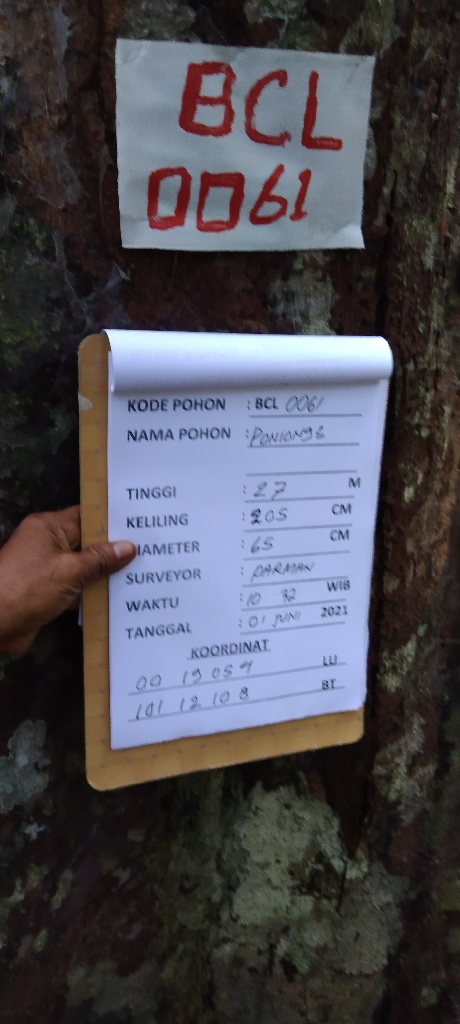 BCL
0061
KODE POHON : BCL 0061
NAMA POHON :
TINGGI : 27 M
KELILING : 205 CM
DIAMETER : 65 CM
SURVEYOR : DARMAN
WAKTU : 10 32 WIB
TANGGAL : 01 JUNI 2021
KOORDINAT
00 19 059 LU
101 12 108 BT